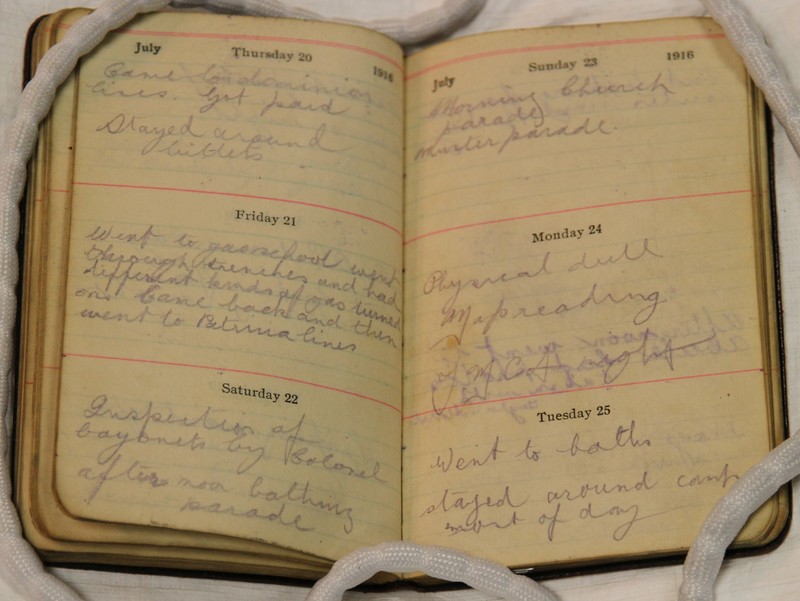 July Thursday 20 1916
Came to dominion
lines Got paid
Stayed around
billets
Friday 21
Went to gas school went
through trenches and had
different kinds of gas turned
on. Came back and then
went to lines
Saturday 22
Inspection of
bayonets by Colonel
after noon bathing
parade
July Sunday 23 1916
Morning Church
parade
Muster parade.
Monday 24
Physical drill
Mapreading
Y.M.C.A. night
Tuesday 25
Went to baths
stayed around camp
most of day